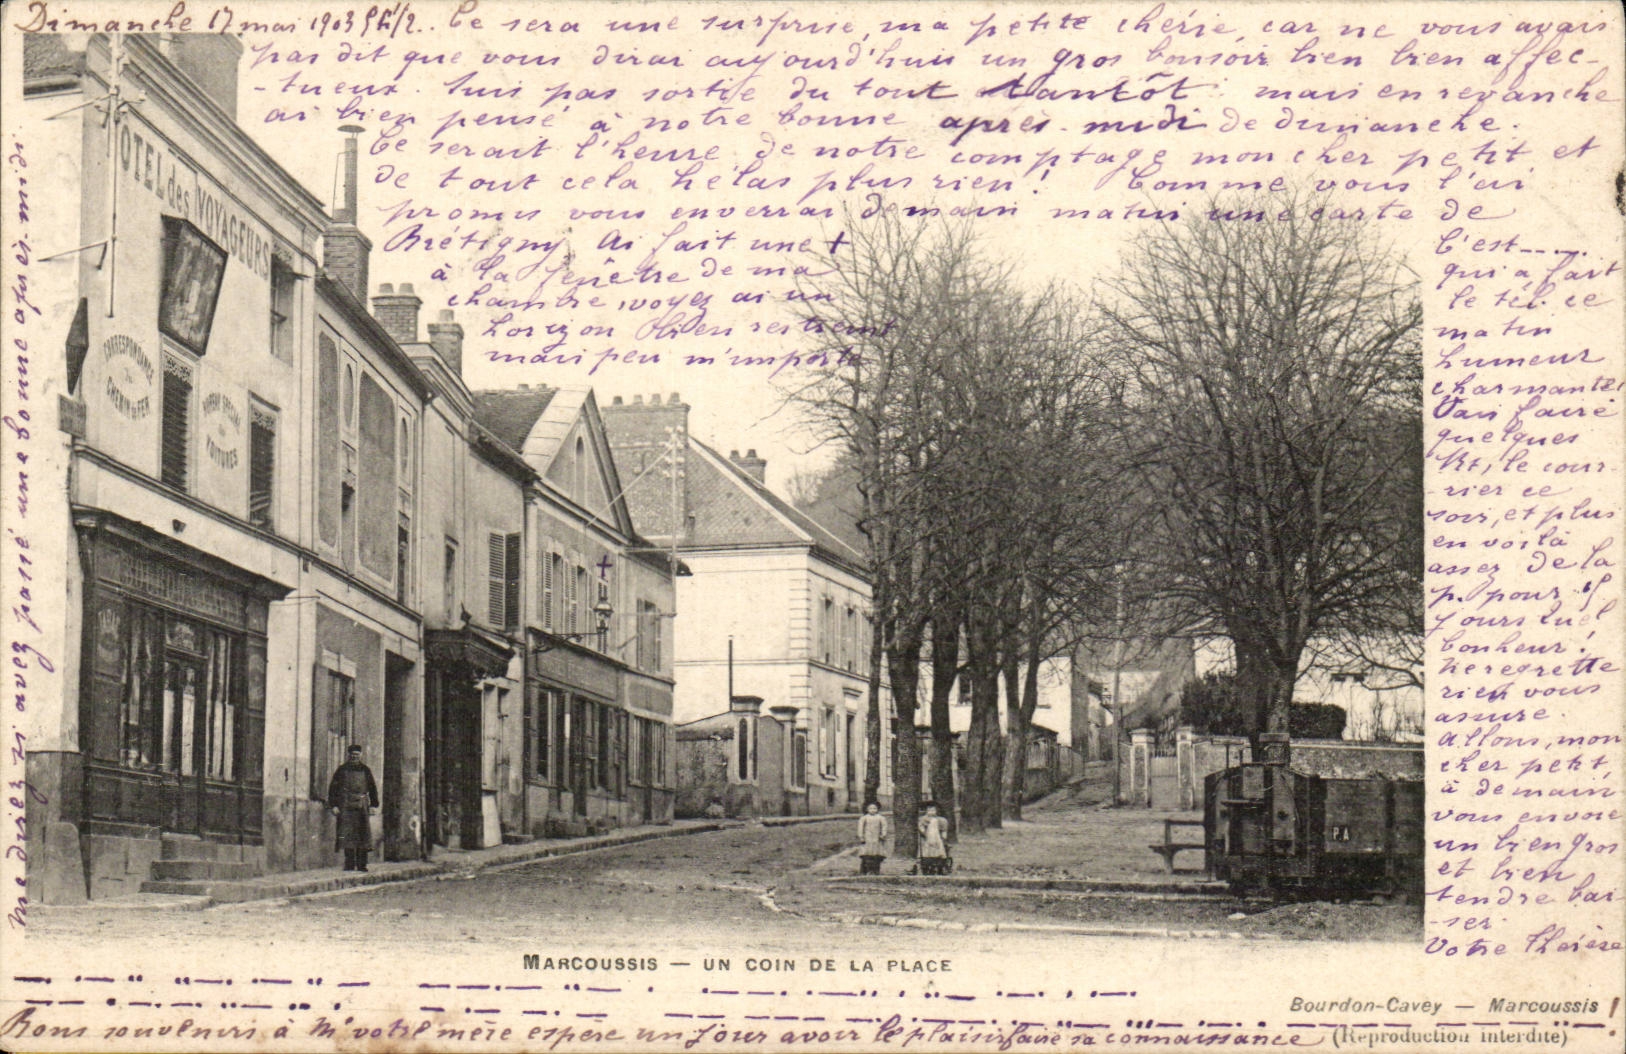 Dimanche 17 mai 1903 5h1/2.. Ce sera une surprise, ma petite chérie, car ne vous avais
pas dit que vous dirai aujourd'hui un gros bonsoir bien bien affec-
-tueux. Suis pas sortie du tout tantôt mais en revanche
ai bien pensé à notre bonne après-midi de dimanche.
Ce serait l'heure de notre comptage mon cher petit et
de tout cela hélas plus rien! Comme vous l'ai
promis vous enverrai demain matin une carte de
Brétigny. Ai fait une +
à la fenêtre de ma
chambre, voyez ai un
horizon bien restreint
mais peu m'importe
C'est-----
qui a fait
le tél. ce
matin
humeur
charmante!
Vais faire
quelques
le cour-
-rier ce
soir, et plus
en voilà
assez de la
p. pour 15
jours quel
bonheur!
ne regrette
rien vous
assure.
Allons, mon
cher petit,
à demain
vous envoie
un bien gros
et bien
tendre bai-
-ser.
Votre Thérèse
me direz si avez passé une bonne après-midi
HOTEL des VOYAGEURS
CORRESPONDANCE
du
CHEMIN de FER
DÉPART SPÉCIAL
DES
VOITURES
TABAC
+
P.A
MARCOUSSIS — UN COIN DE LA PLACE
Bourdon-Cavey — Marcoussis
(Reproduction interdite)
Bons souvenirs à M' votre mère espère un jour avoir le plaisir faire sa connaissance